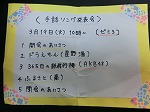 (手話ソング発表会)
3月19日(火) 10時〜 (ピミラ)
1 開会のあいさつ
2 ドラえもん (星野源)
3 365日の紙飛行機 (AKB48)
4 ふるさと (嵐)
5 閉会のあいさつ